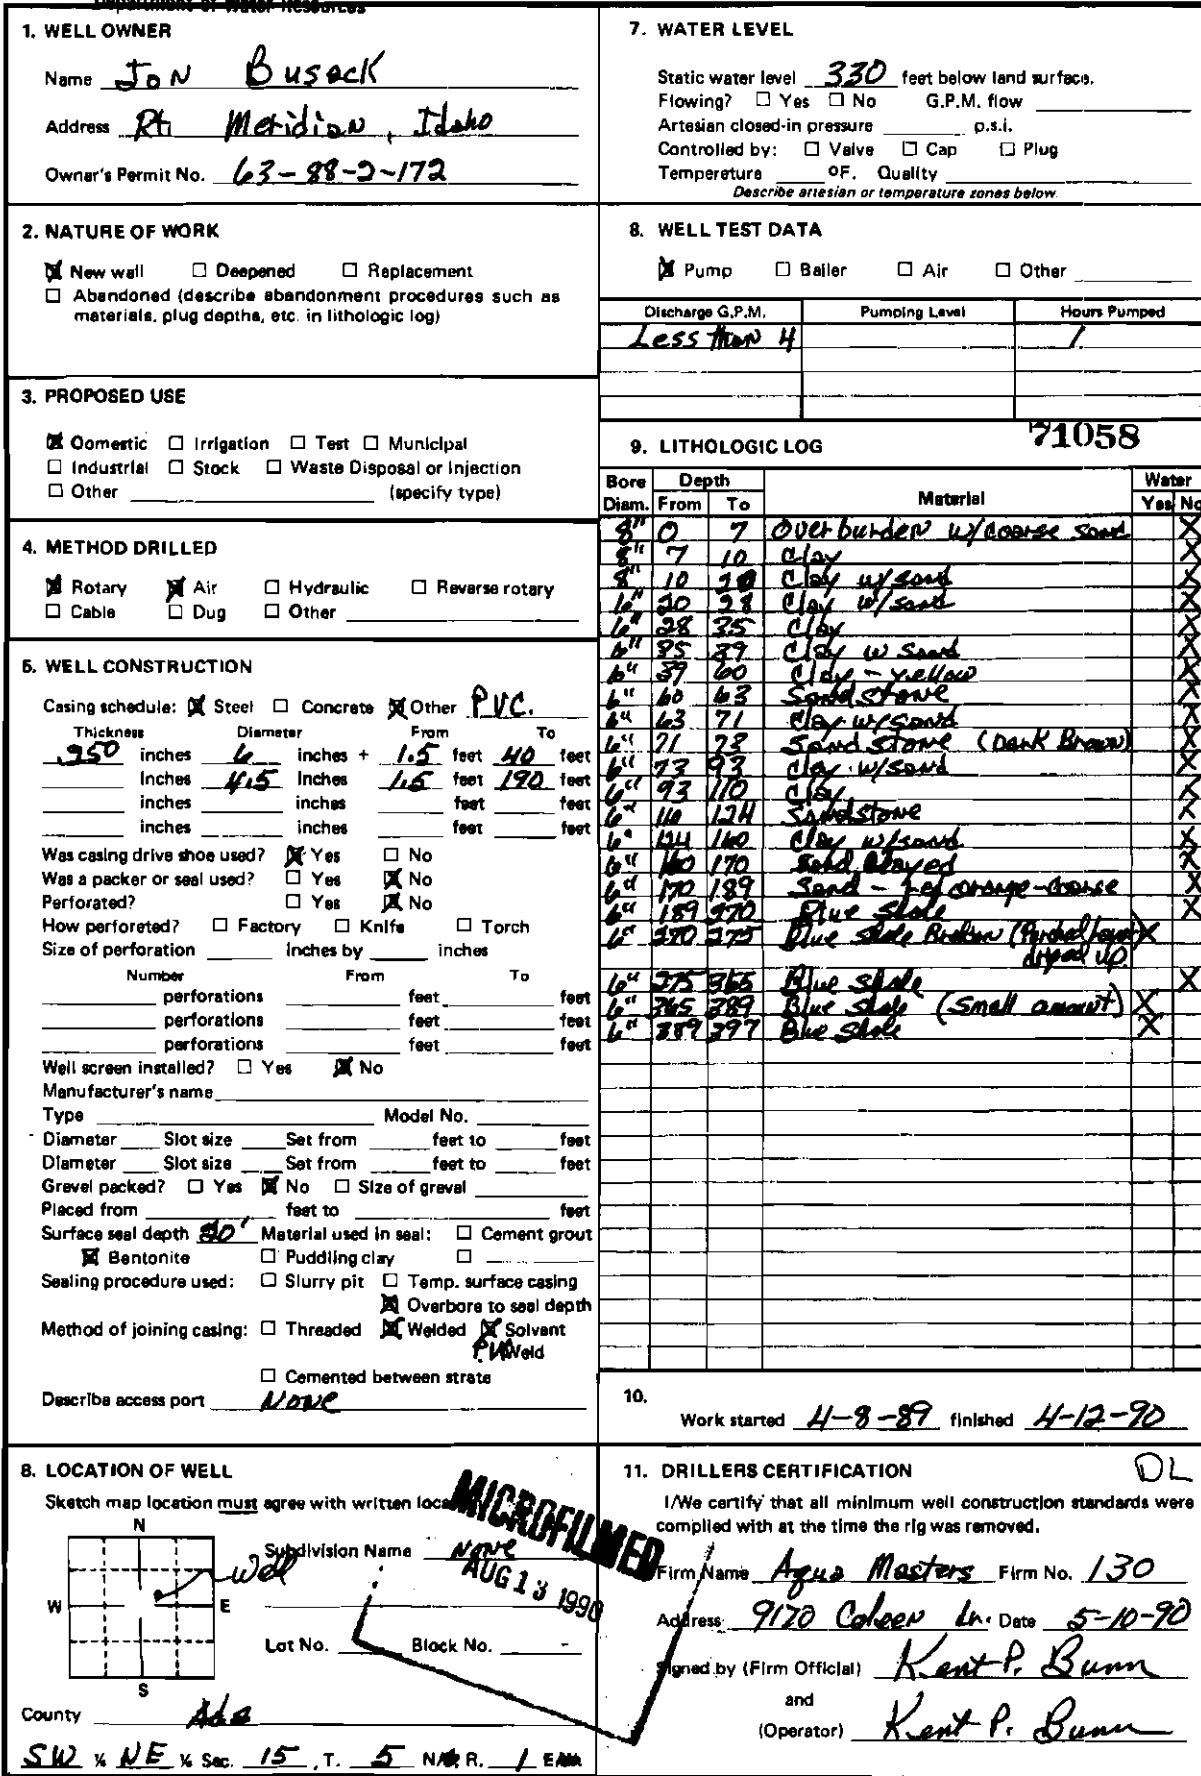 Department of Water Resources
1. WELL OWNER
Name JON Busack
Address Rt. Meridian, Idaho
Owner's Permit No. 63-88-2-172
2. NATURE OF WORK
☒ New well ☐ Deepened ☐ Replacement
☐ Abandoned (describe abandonment procedures such as
materials, plug depths, etc. in lithologic log)
3. PROPOSED USE
☒ Domestic ☐ Irrigation ☐ Test ☐ Municipal
☐ Industrial ☐ Stock ☐ Waste Disposal or Injection
☐ Other (specify type)
4. METHOD DRILLED
☒ Rotary ☒ Air ☐ Hydraulic ☐ Reverse rotary
☐ Cable ☐ Dug ☐ Other
5. WELL CONSTRUCTION
Casing schedule: ☒ Steel ☐ Concrete ☒ Other P.V.C.
Thickness Diameter From To
.250 inches 6 inches + 1.5 feet 40 feet
inches 4.5 inches 1.5 feet 190 feet
inches inches feet feet
inches inches feet feet
Was casing drive shoe used? ☒ Yes ☐ No
Was a packer or seal used? ☐ Yes ☒ No
Perforated? ☐ Yes ☒ No
How perforated? ☐ Factory ☐ Knife ☐ Torch
Size of perforation inches by inches
Number From To
perforations feet feet
perforations feet feet
perforations feet feet
Well screen installed? ☐ Yes ☒ No
Manufacturer's name
Type Model No.
Diameter Slot size Set from feet to feet
Diameter Slot size Set from feet to feet
Gravel packed? ☐ Yes ☒ No ☐ Size of gravel
Placed from feet to feet
Surface seal depth 20' Material used in seal: ☐ Cement grout
☒ Bentonite ☐ Puddling clay ☐
Sealing procedure used: ☐ Slurry pit ☐ Temp. surface casing
☒ Overbore to seal depth
Method of joining casing: ☐ Threaded ☒ Welded ☒ Solvent
PVC Weld
☐ Cemented between strata
Describe access port None
6. LOCATION OF WELL
Sketch map location must agree with written
N
W E
S
Well
Subdivision Name None
Lot No. Block No. -
County Ada
SW ¼ NE ¼ Sec. 15, T. 5 N R. 1 E
MICROFILMED
AUG 13 1990
7. WATER LEVEL
Static water level 330 feet below land surface.
Flowing? ☐ Yes ☐ No G.P.M. flow
Artesian closed-in pressure p.s.i.
Controlled by: ☐ Valve ☐ Cap ☐ Plug
Temperature °F. Quality
Describe artesian or temperature zones below.
8. WELL TEST DATA
☒ Pump ☐ Bailer ☐ Air ☐ Other
Discharge G.P.M. Pumping Level Hours Pumped
Less than 4 1
71058
9. LITHOLOGIC LOG
Bore Depth Water
Diam. From To Material Yes No
8" 0 7 Overburden w/coarse sand X
8" 7 10 Clay X
8" 10 20 Clay w/sand X
6" 20 28 Clay w/sand X
6" 28 35 Clay X
6" 35 39 Clay w sand X
6" 39 60 Clay - yellow X
6" 60 63 Sandstone X
6" 63 71 Clay w/sand X
6" 71 73 Sandstone (Dark Brown) X
6" 73 93 Clay w/sand X
6" 93 110 Clay X
6" 110 124 Sandstone X
6" 124 160 Clay w/sand X
6" 160 170 Sand Clayed X
6" 170 189 Sand - orange-coarse X
6" 189 270 Blue Shale X
6" 270 275 Blue Shale Broken X
dryed up.
6" 275 365 Blue Shale X
6" 365 389 Blue Shale (Small amount) X
6" 389 397 Blue Shale X
10.
Work started 4-8-89 finished 4-12-90
11. DRILLERS CERTIFICATION DL
I/We certify that all minimum well construction standards were
complied with at the time the rig was removed.
Firm Name Aqua Masters Firm No. 130
Address 9170 Coleen Ln. Date 5-10-90
Signed by (Firm Official) Kent P. Bunn
and
(Operator) Kent P. Bunn